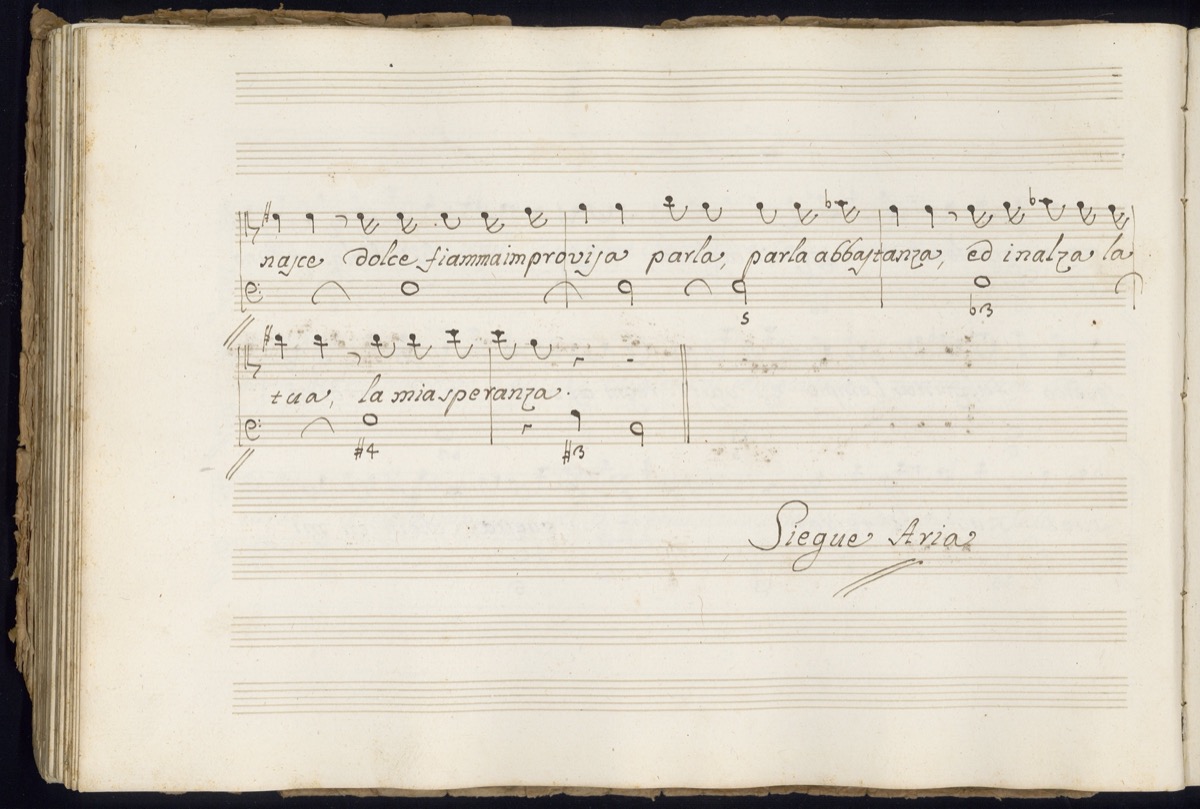 nasce dolce fiamma improvisa parla, parla abbastanza, ed inalza la
5 b3
tua, la mia speranza.
#4 #3
Siegue Aria